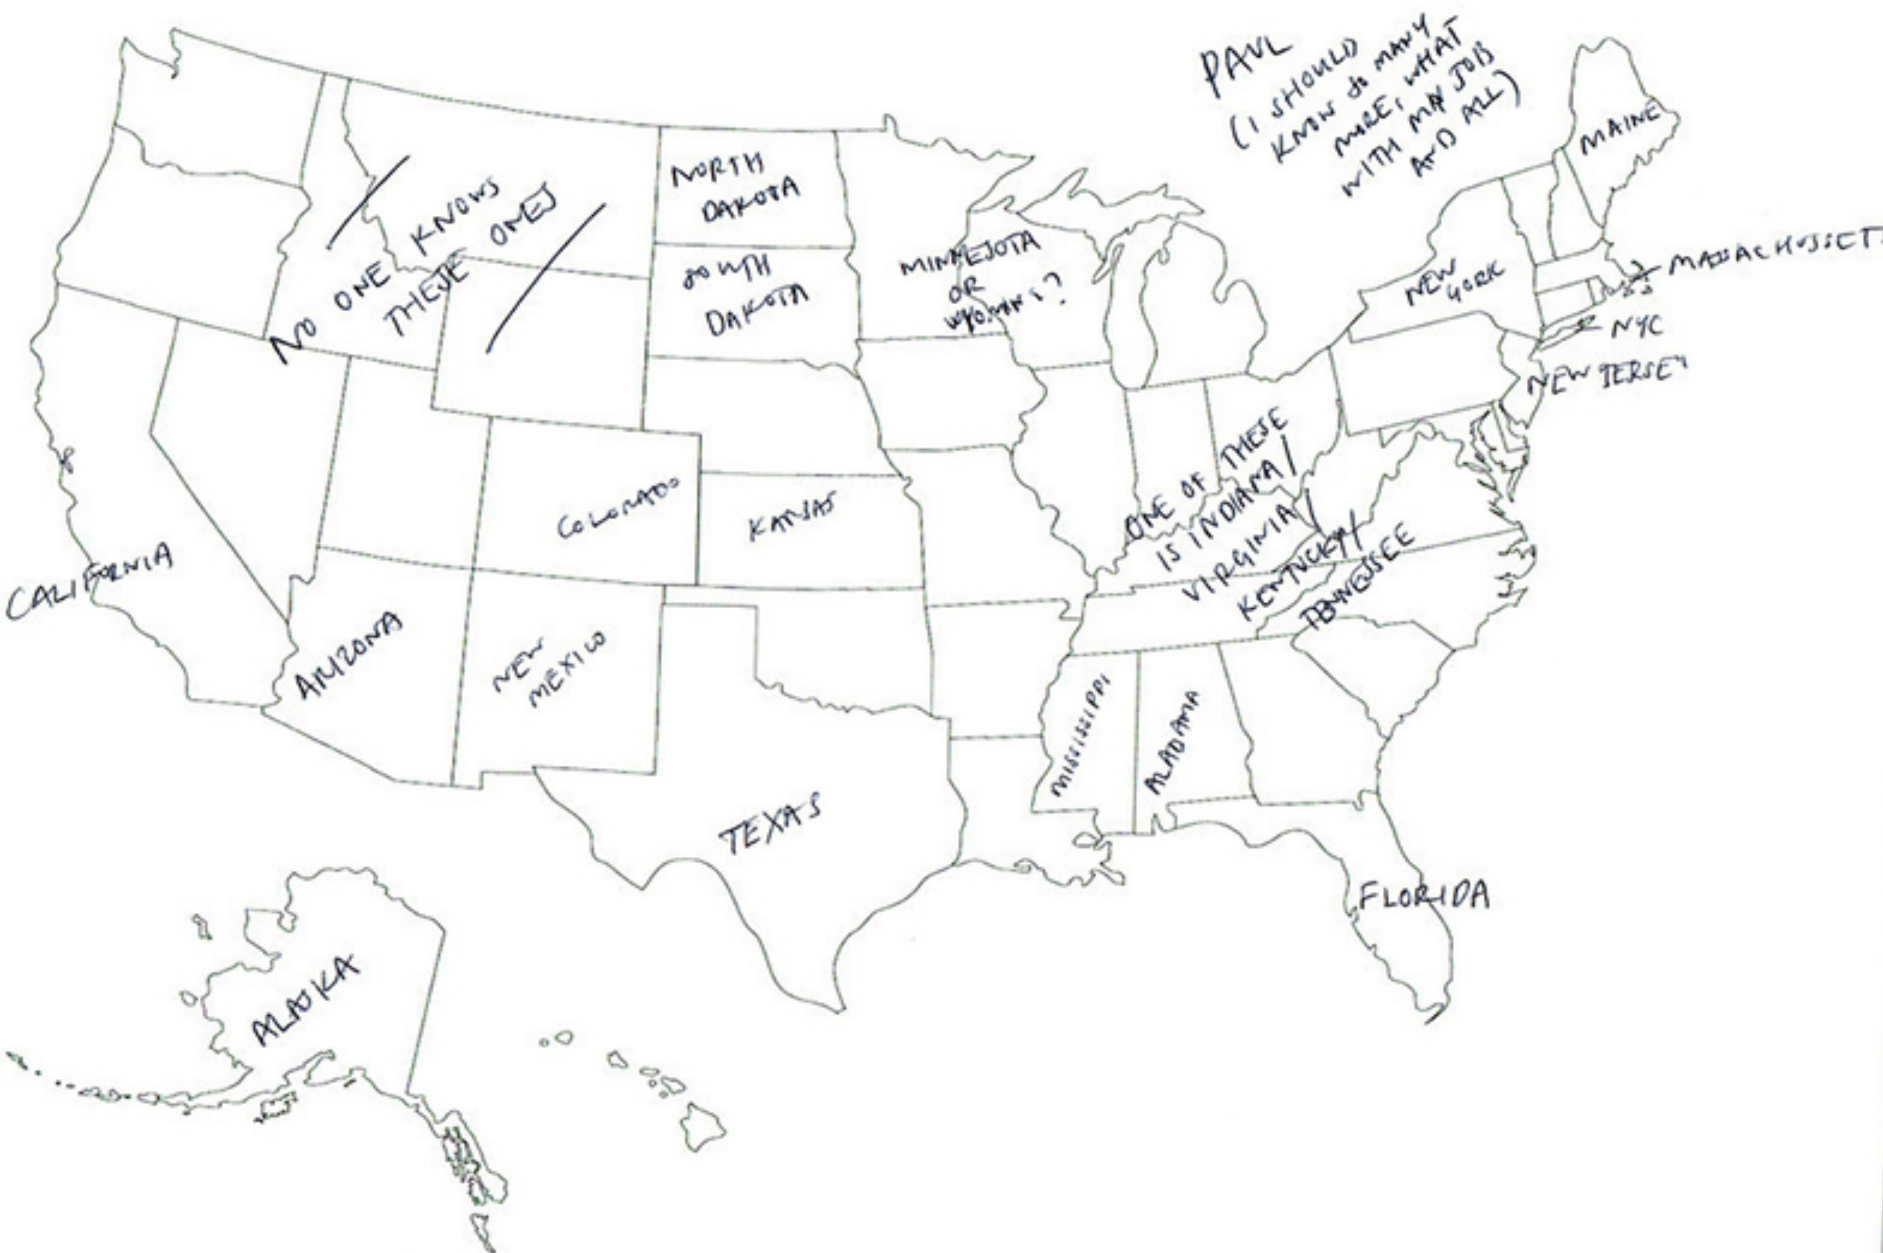 PAUL
(I SHOULD
KNOW SO MANY
MORE, WHAT
WITH MY JOB
AND ALL)
MAINE
NORTH
DAKOTA
NO ONE KNOWS
THESE ONES
SOUTH
DAKOTA
MINNESOTA
OR
NEW
YORK
MASSACHUSSETS
NYC
NEW JERSEY
ONE OF THESE
IS INDIANA/
VIRGINIA/
KENTUCKY/
TENNESSEE
COLORADO
KANSAS
CALIFORNIA
ARIZONA
NEW
MEXICO
MISSISSIPPI
ALABAMA
TEXAS
FLORIDA
ALASKA